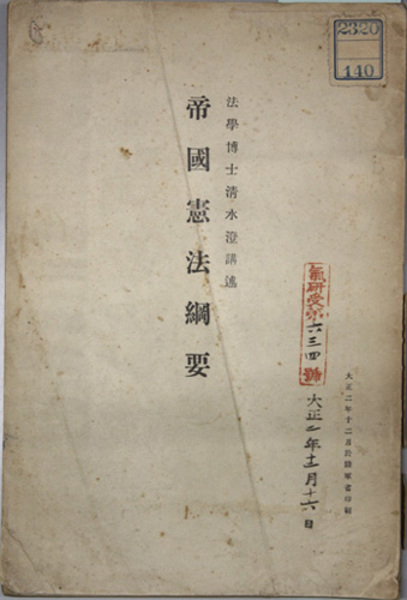 2320
140
法學博士清水澄講述
帝國憲法綱要
氣研受第六三四號
大正二年十二月十六日
大正二年十二月於陸軍省印刷